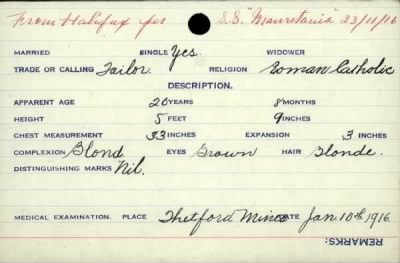 From Halifax per S.S. "Mauretania" 23/11/16
MARRIED SINGLE Yes. WIDOWER
TRADE OR CALLING Tailor. RELIGION Roman Catholic
DESCRIPTION.
APPARENT AGE 20 YEARS 8 MONTHS
HEIGHT 5 FEET 9 INCHES
CHEST MEASUREMENT 33 INCHES EXPANSION 3 INCHES
COMPLEXION Blond EYES Brown HAIR Blonde.
DISTINGUISHING MARKS Nil.
MEDICAL EXAMINATION. PLACE Thetford Mines DATE Jan 10th 1916.
REMARKS: